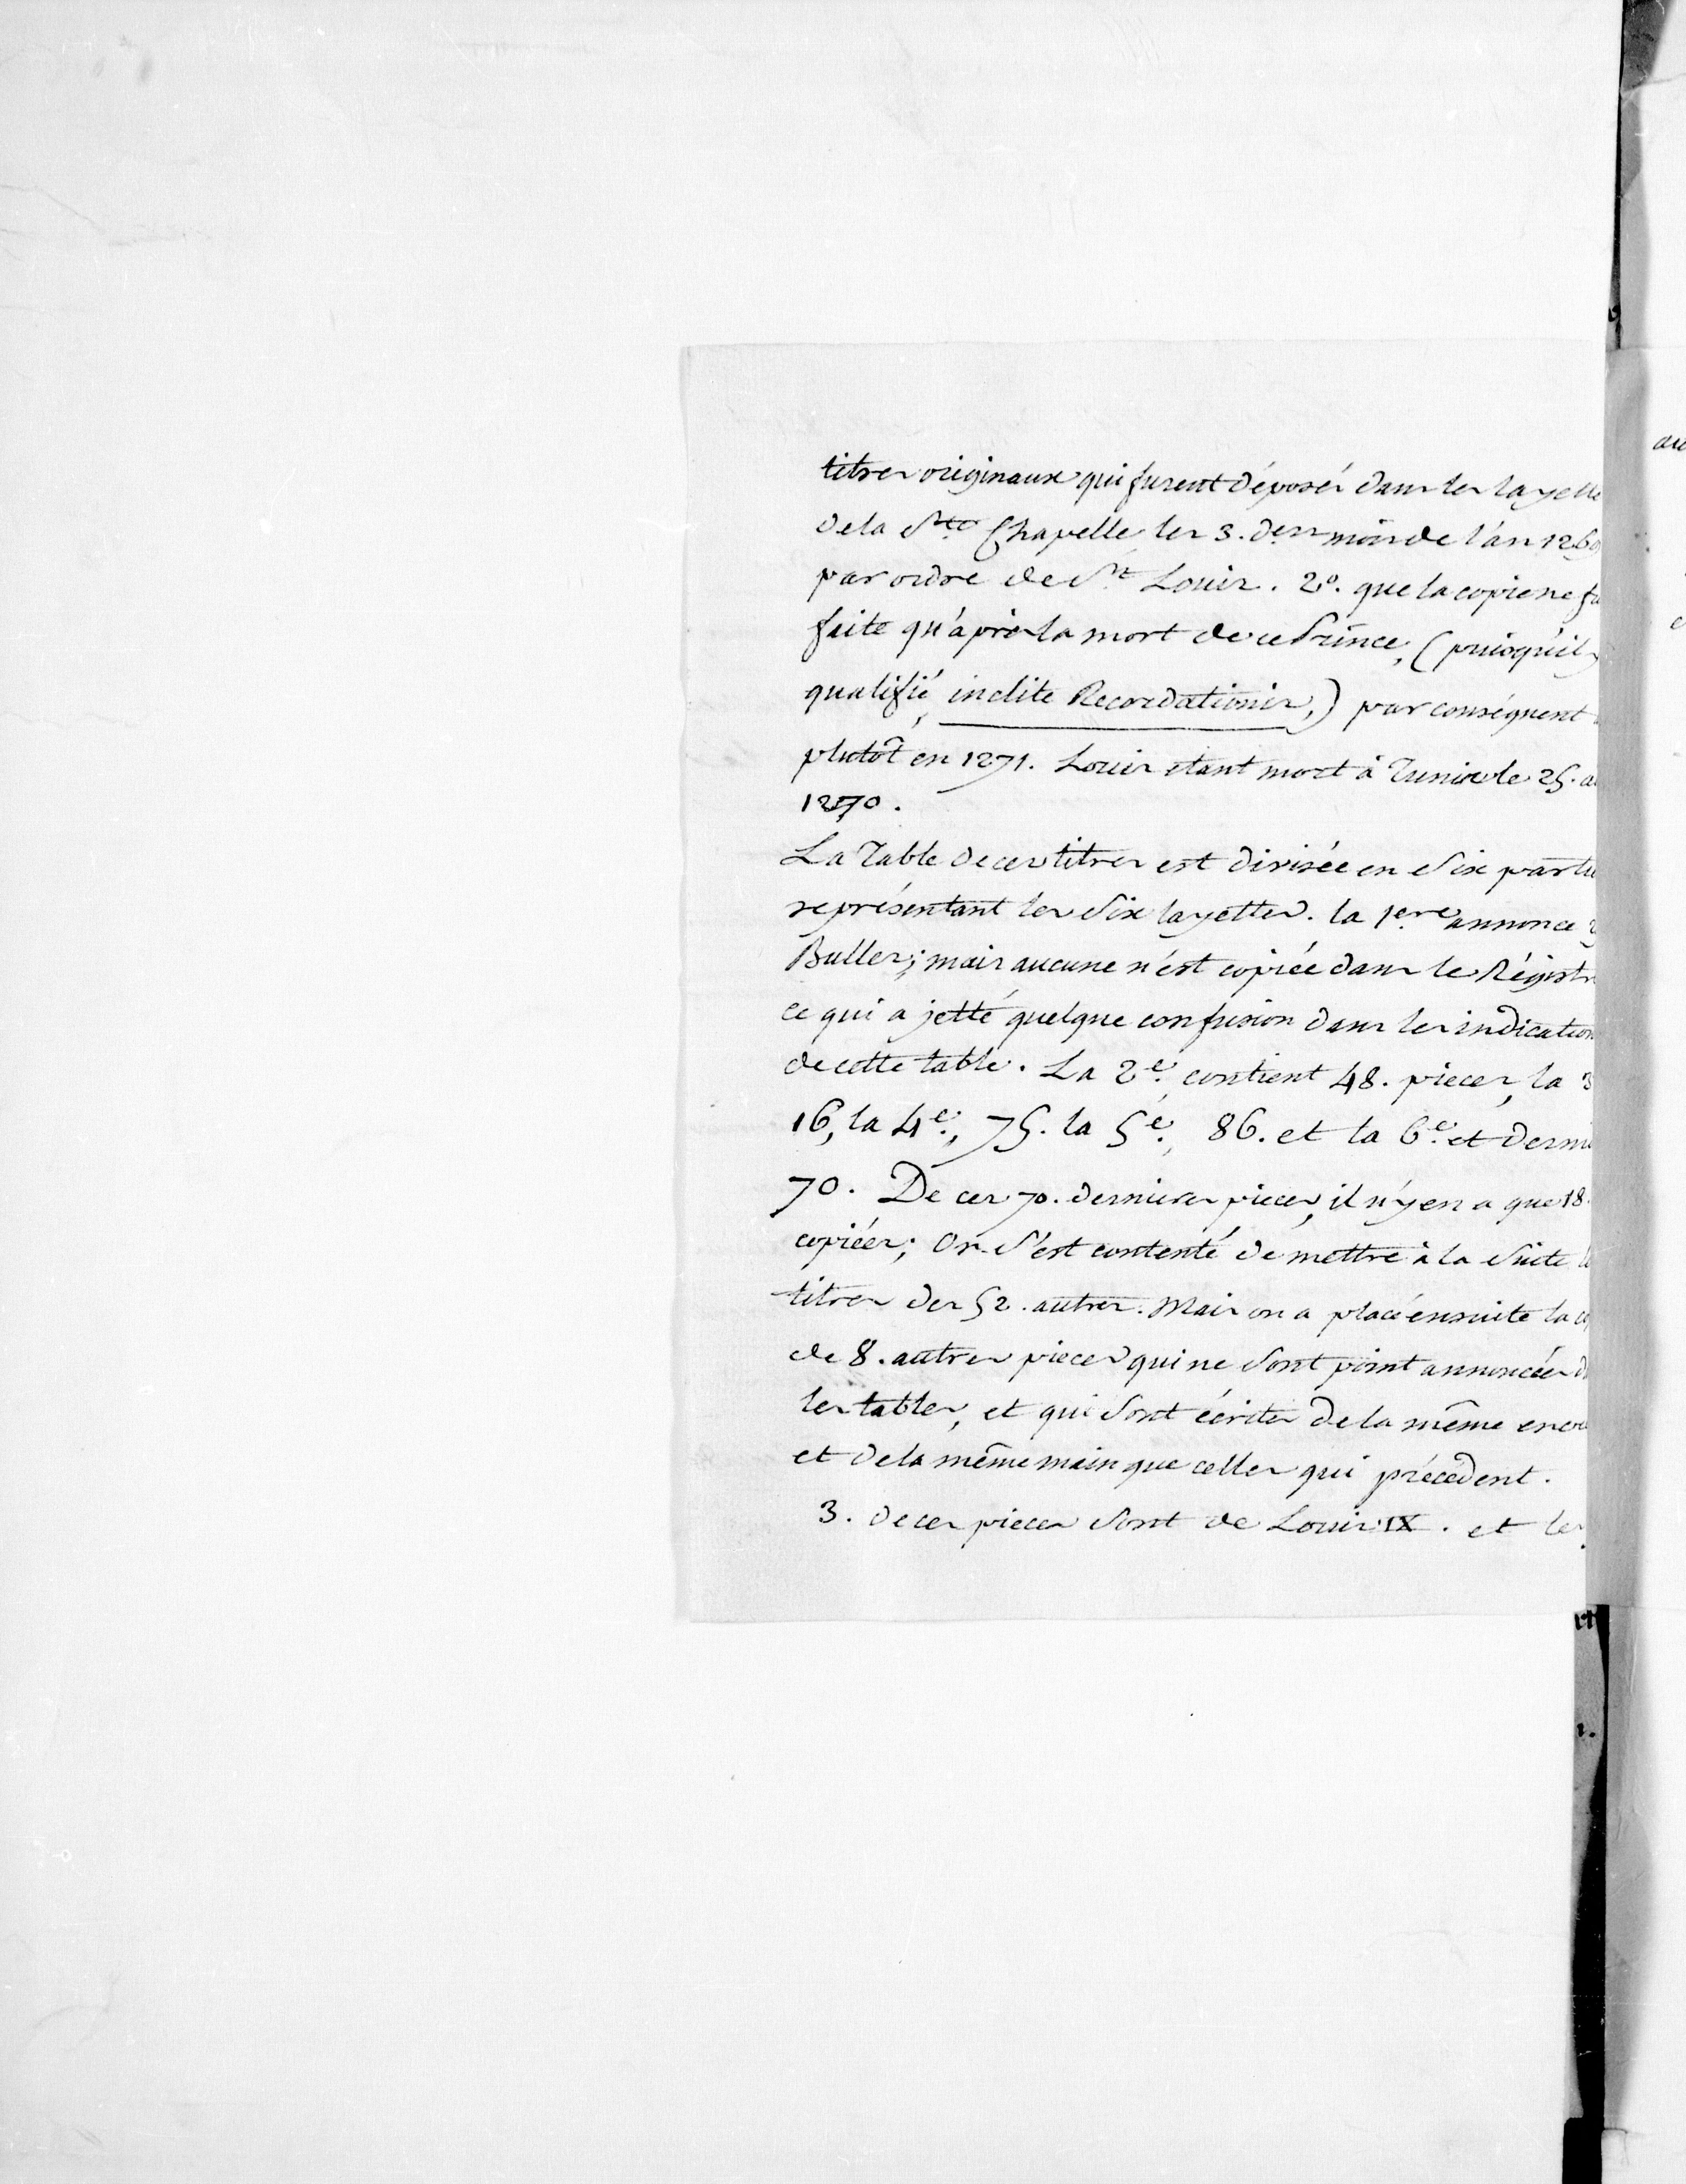 titres originaux qui furent déposés dans les layette
de la Ste. Chapelle les 3. ders mois de l'an 1269
par ordre de St. Louis. 2º. que la copie ne fu
faite qu'après la mort de ce Prince, (puisqu'il
qualifié, inclite Recordationis,) par conséquent
plutôt en 1271. Louis étant mort à Tunis le 25. a
1270.
La Table de ces titres est divisée en Six partie
représentant les Six layettes. la 1ere. annonce
Bulles; mais aucune n'est copiée dans le Régistr
ce qui a jetté quelque confusion dans les indication
de cette table. La 2e. contient 48. pieces, la 3
16, la 4e., 75. la 5e., 86. et la 6e. et derni
70. De ces 70. dernieres pieces, il n'y en a que 18.
copiées; On s'est contenté de mettre à la Suite
titres des 52. autres. Mais on a placé ensuite la
de 8. autres pieces qui ne Sont point annoncées
les tables, et qui Sont écrites de la même encr
et de la même main que celles qui précédent.
3. de ces pieces Sont de Louis IX. et les